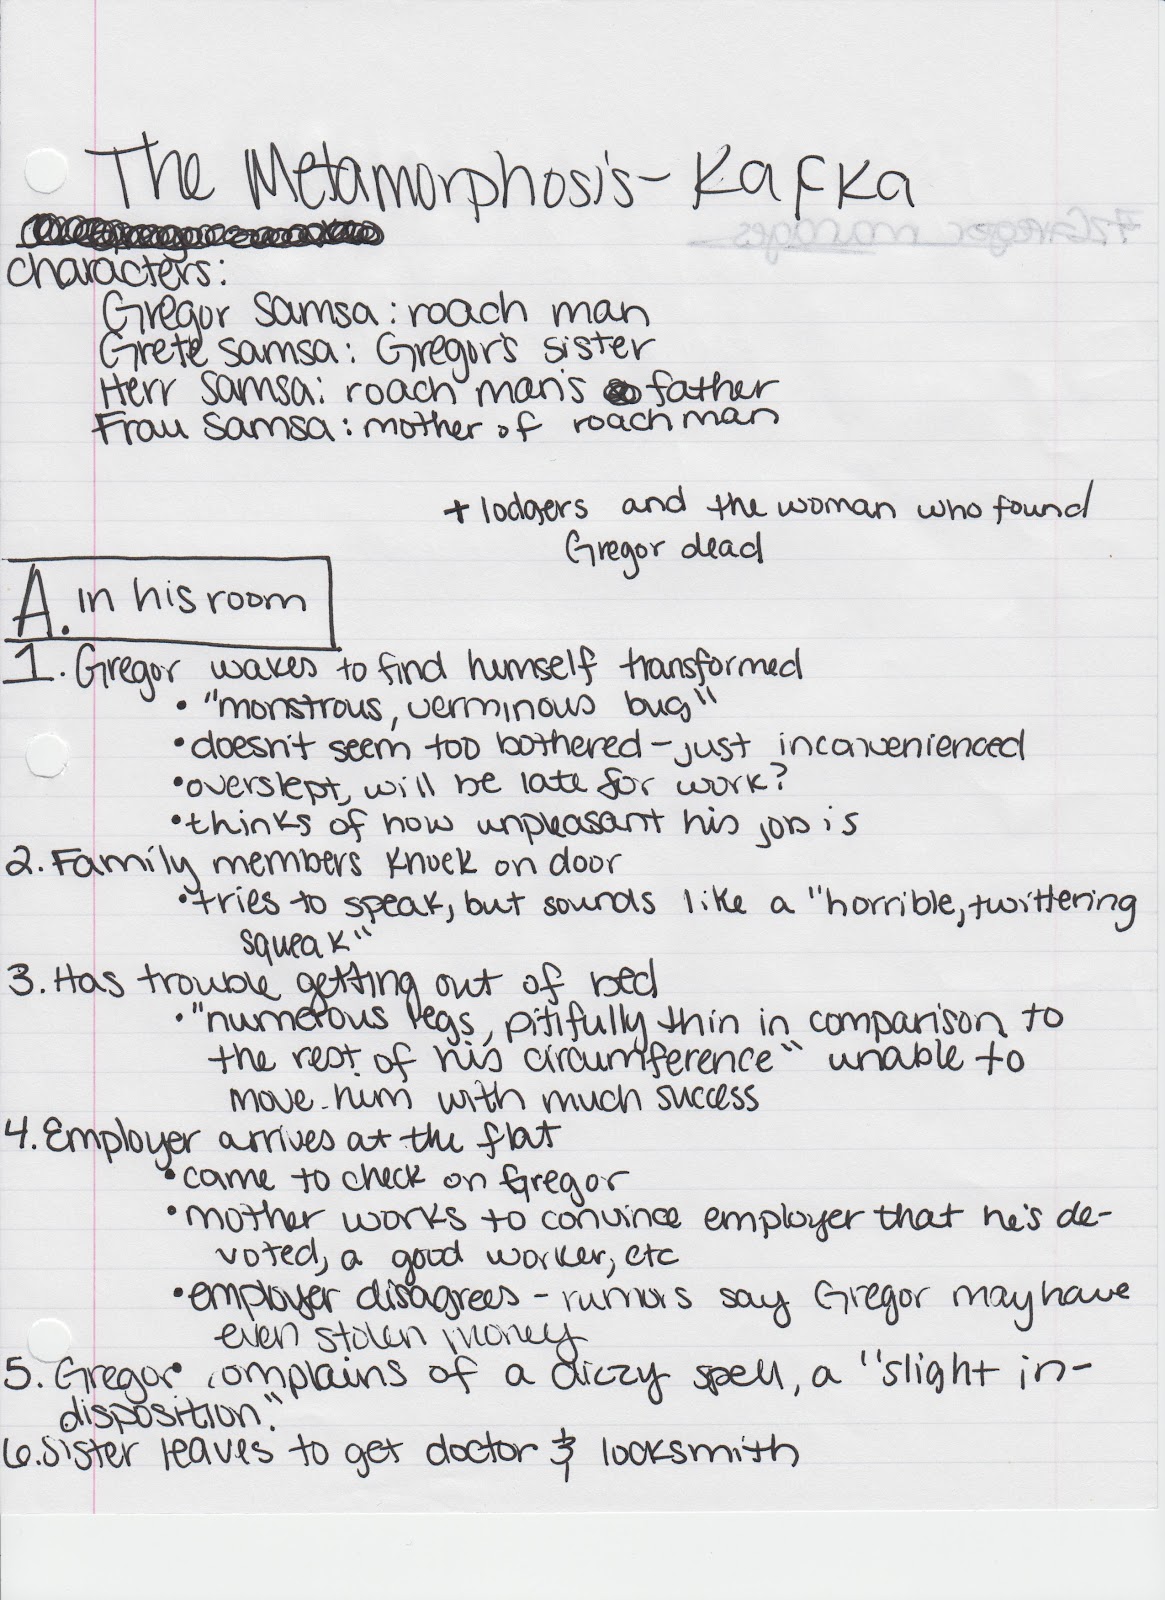 The Metamorphosis - Kafka
characters:
Gregor Samsa: roach man
Grete Samsa: Gregor's sister
Herr Samsa: roach man's father
Frau Samsa: mother of roach man
+ lodgers and the woman who found
Gregor dead
A. in his room
1. Gregor wakes to find humself transformed
• "monstrous, verminous bug"
• doesn't seem too bothered - just inconvenienced
• overslept, will be late for work?
• thinks of how unpleasant his job is
2. Family members knock on door
• tries to speak, but sounds like a "horrible, twittering
squeak"
3. Has trouble getting out of bed
• "numerous legs, pitifully thin in comparison to
the rest of his circumference" unable to
move him with much success
4. Employer arrives at the flat
• came to check on Gregor
• mother works to convince employer that he's de-
voted, a good worker, etc
• employer disagrees - rumors say Gregor may have
even stolen money
5. Gregor complains of a dizzy spell, a "slight in-
disposition."
6. Sister leaves to get doctor & locksmith